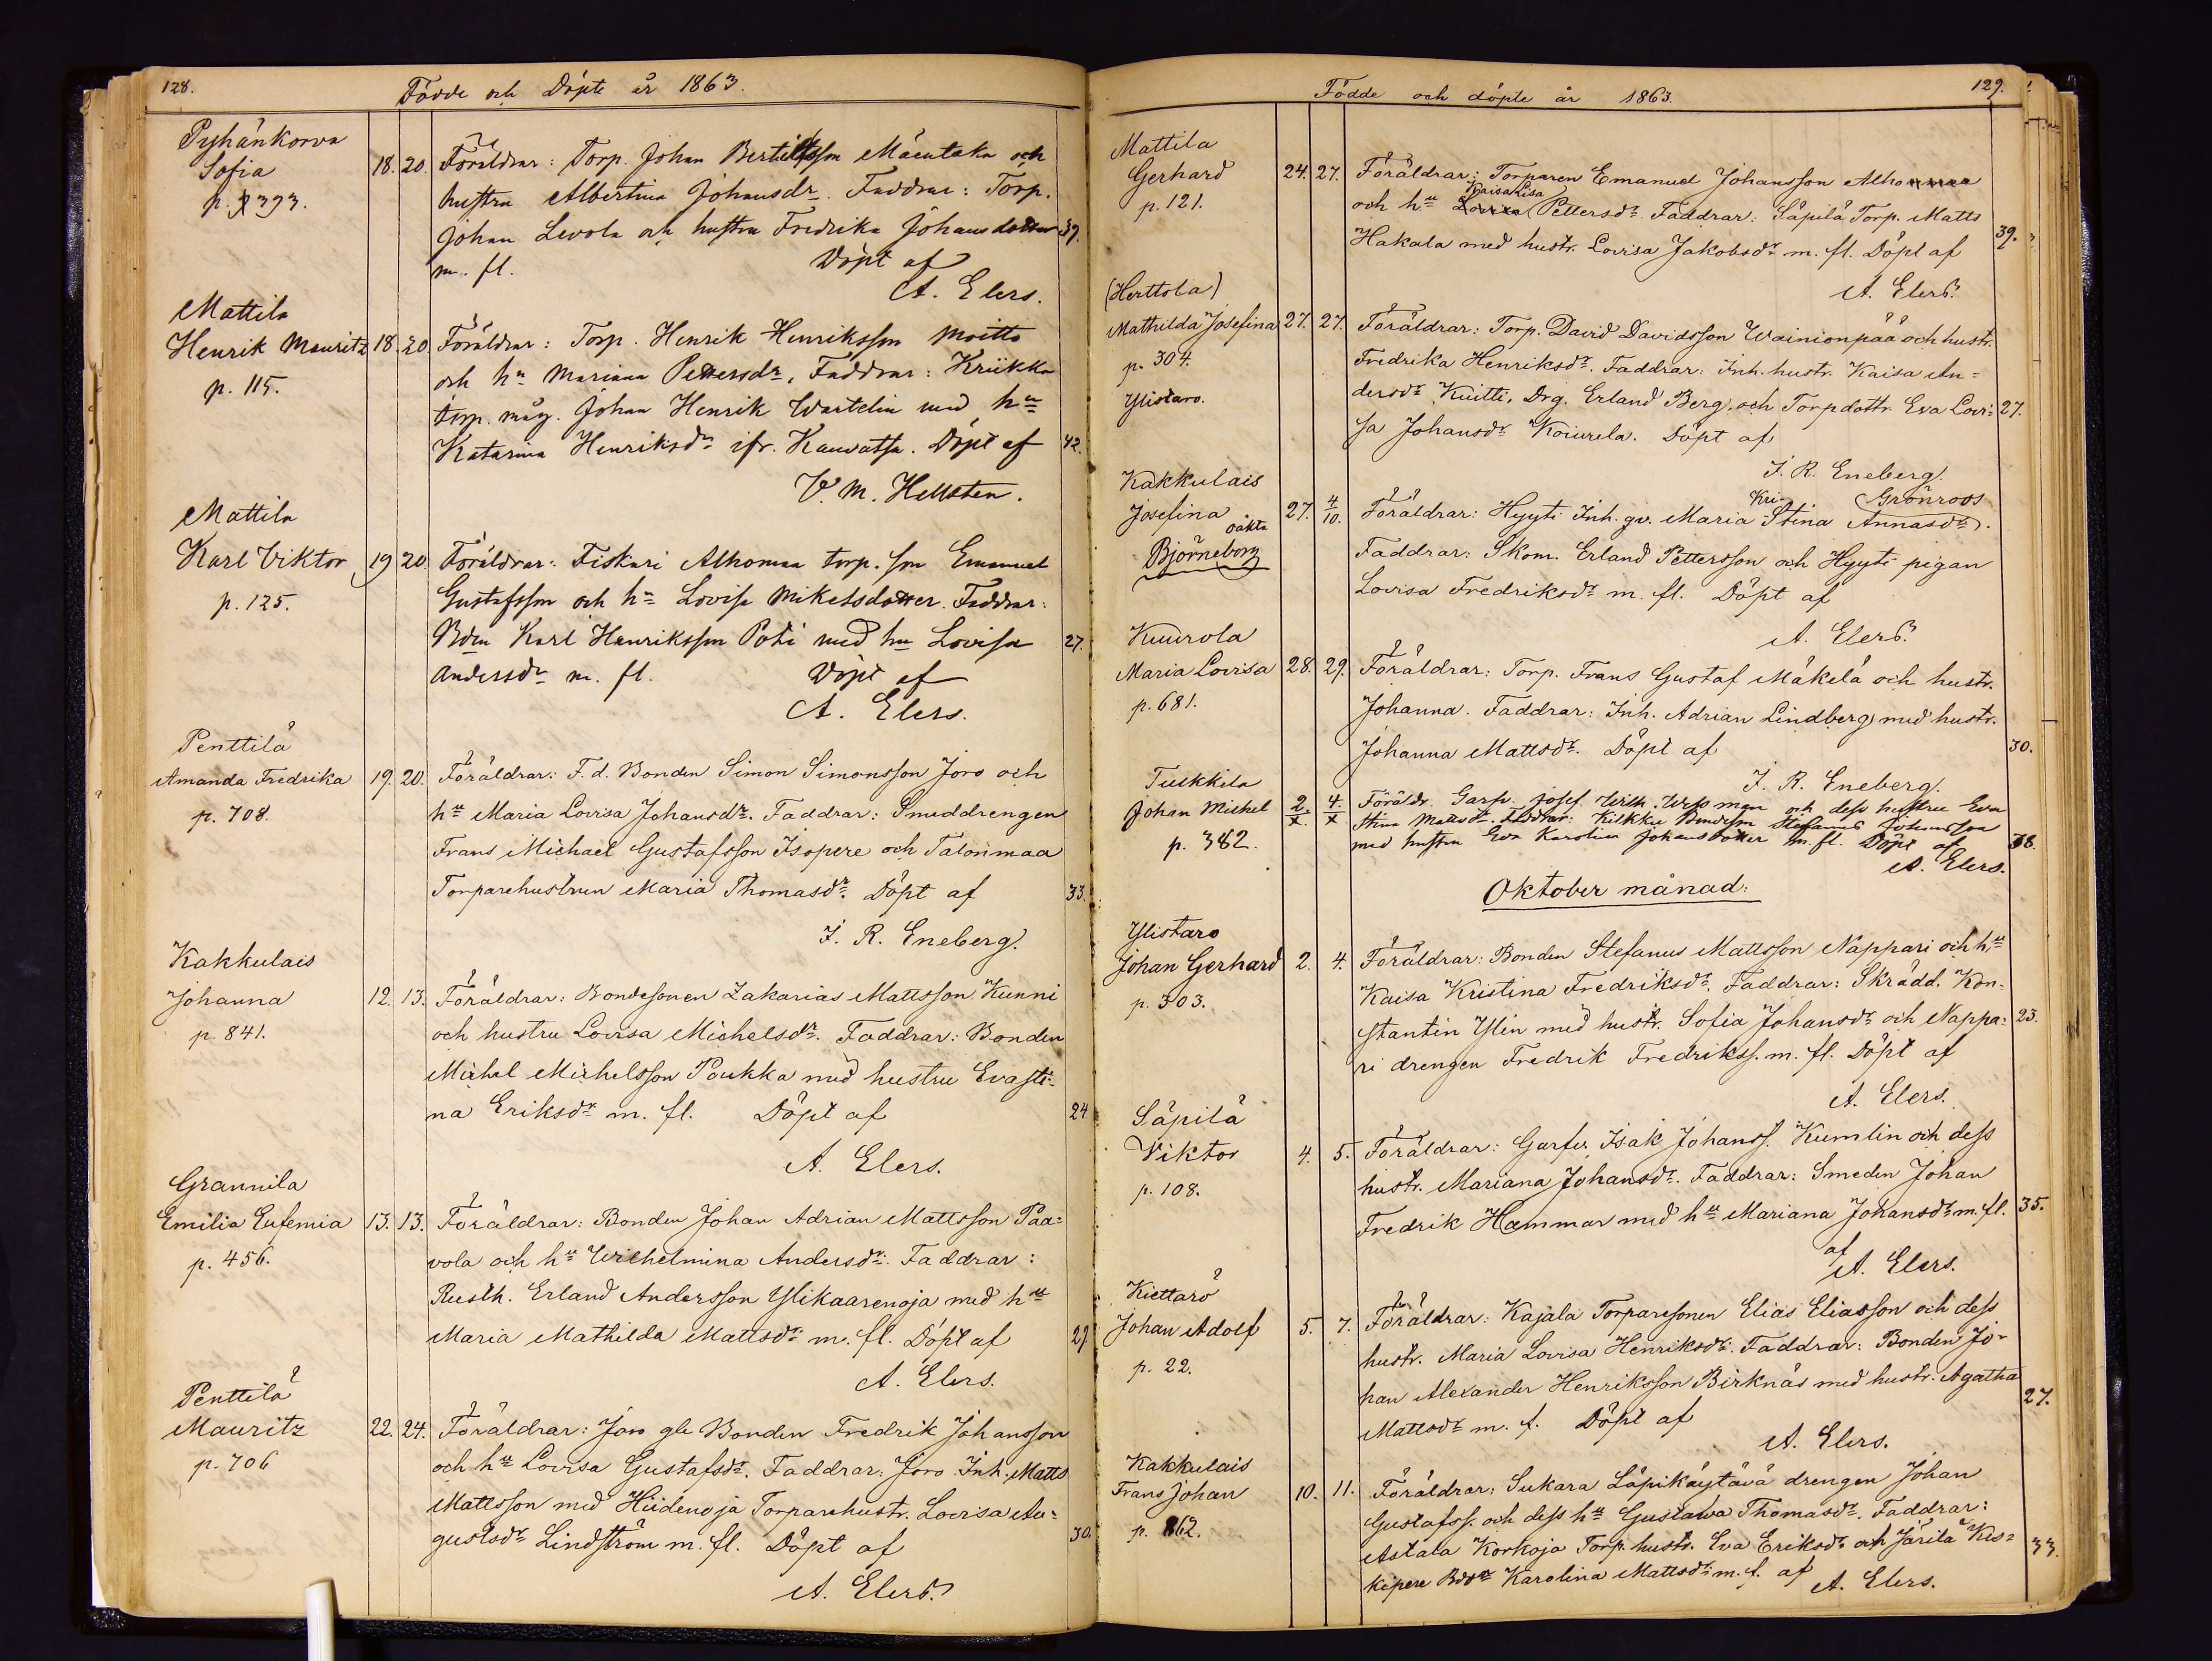 128.
Födde och Döpte år 1863.
Pyhänkorva
Sofia
p. 393.
18. 20. Föräldrar: Torp. Johan Bertilsson Mäentaka och
hustru Albertina Johansdr. Faddrar: Torp.
Johan Levola och hustru Fredrika Johansdotter 39.
m. fl. Döpt af
A. Elers.
Mattila
Henrik Mauritz
p. 115.
18. 20 Föräldrar: Torp. Henrik Henriksson Moitto
och hu Mariana Pettersdr, Faddrar: Krükka
torp. måg. Johan Henrik Wartelin med hu
Katarina Henriksdr ifr. Kauvatsa. Döpt af 42.
V. M. Hellsten.
Mattila
Karl Viktor
p. 125.
19 20. Föräldrar: Fiskari Alhomaa torp. son Emanuel
Gustafsson och hu Lovisa Mikelsdotter. Faddrar:
Bden Karl Henriksson Poti med hu Lovisa 27.
Andersdr m. fl. Döpt af
A. Elers.
Penttilä
Amanda Fredrika
p. 708.
19. 20. Föräldrar: F. d. Bonden Simon Simonsson Joro och
hu Maria Lovisa Johansdr. Faddrar: Smeddrengen
Frans Michael Gustafsson Isopere och Talonmaa
Torparehustrun Maria Thomasdr. Döpt af 33.
J. R. Eneberg.
Kakkulais
Johanna
p. 841.
12. 13. Föräldrar: Bondesonen Zakarias Mattsson Kunni
och hustru Lovisa Michelsdr. Faddrar: Bonden
Michel Michelsson Poukka med hustru Evasti-
na Eriksdr m. fl. Döpt af 24.
A. Elers.
Grannila
Emilia Eufemia
p. 456.
13. 13. Föräldrar: Bonden Johan Adrian Mattsson Paa-
vola och hu Wilhelmina Andersdr. Faddrar:
Rusth. Erland Andersson Ylikaarenoja med hu
Maria Mathilda Mattsdr m. fl. Döpt af 29
A. Elers.
Penttilä
Mauritz
p. 706
22. 24. Föräldrar: Joro gle Bonden Fredrik Johansson
och hu Lovisa Gustafsdr. Faddrar: Joro Inh. Matts
Mattsson med Hiidenoja Torparehustr. Lovisa Au-
gustsdr Lindström m. fl. Döpt af 30.
A. Elers.
129.
Födde och döpte år 1863.
Mattila
Gerhard
p. 121.
24. 27. Föräldrar: Torparen Emanuel Johansson Alho
Kaisa Lisa
och hu Lovisa Pettersdr. Faddrar: Säpilä Torp. Matts
Hakala med hustr. Lovisa Jakobsdr m. fl. Döpt af 39.
A. Elers.
(Herttola)
Mathilda Josefina
p. 304.
Ylistaro.
27. 27. Föräldrar: Torp. David Davidsson Wainionpää och hustr.
Fredrika Henriksdr. Faddrar: Inh. hustr. Kaisa An-
dersdr Kuitti, Drg. Erland Berg och Torpdottr. Eva Lovi- 27.
sa Johansdr Koiurela. Döpt af
J. R. Eneberg.
Kakkulais
Josefina
oäkta
Björneborg
27. 4/10. Föräldrar: Hyyti Inh. qv. Maria Stina Annasdr.
Kri- Grönroos
Faddrar: Skom. Erland Pettersson och Hyyti pigan
Lovisa Fredriksdr m. fl. Döpt af
A. Elers.
Kuurola
Maria Lovisa
p. 681.
28. 29. Föräldrar: Torp. Frans Gustaf Mäkelä och hustr.
Johanna. Faddrar: Inh. Adrian Lindberg med hustr.
Johanna Mattsdr. Döpt af 30.
J. R. Eneberg.
Tuckkila
Johan Michel
p. 382.
2/X. 4/X Föräldr. Garfv. Josef Wilh. Wessman och dess hustru Eva
Stina Mattsdr. Faddrar: Kilkku Bondeson Stefanus Johansson
med hustru Eva Karolina Johansdotter m. fl. Döpt af 38.
A. Elers.
Oktober månad:
Ylistaro
Johan Gerhard
p. 303.
2. 4. Föräldrar: Bonden Stefanus Mattsson Nappari och hu
Kaisa Kristina Fredriksdr. Faddrar: Skrädd. Kon-
stantin Ylin med hustr. Sofia Johansdr och Nappa- 23.
ri drengen Fredrik Fredrikss. m. fl. Döpt af
A. Elers.
Säpilä
Viktor
p. 108.
4. 5. Föräldrar: Garfv. Isak Johanss. Kumlin och dess
hustr. Mariana Johansdr. Faddrar: Smeden Johan
Fredrik Hammar med hu Mariana Johansdr m. fl. 35.
af
A. Elers.
Kiettarö
Johan Adolf
p. 22.
5. 7. Föräldrar: Kajala Torparesonen Elias Eliasson och dess
hustr. Maria Lovisa Henriksdr. Faddrar: Bonden Jo-
han Alexander Henriksson Birknäs med hustr. Agatha 27.
Mattsdr m. f. Döpt af
A. Elers.
Kakkulais
Frans Johan
p. 862.
10. 11. Föräldrar: Sukara Läpikäytävä drengen Johan
Gustafss. och dess hu Gustava Thomasdr. Faddrar:
Astala Korkoja Torp. hustr. Eva Eriksdr och Järilä Kis-
kipere Karolina Mattsdr m. f. af 33.
A. Elers.